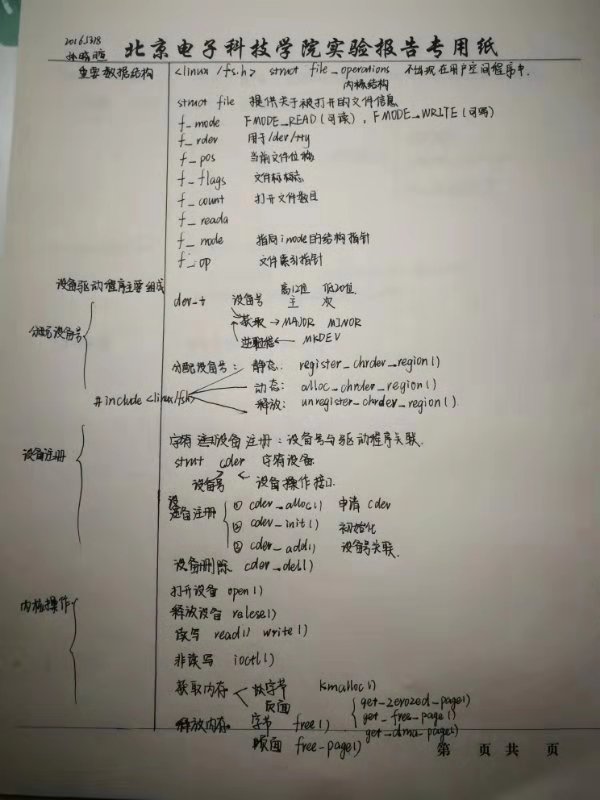 20165318
孙晓暄 北京电子科技学院实验报告专用纸
重要数据结构 <linux/fs.h> struct file_operations 不出现在用户空间程序中.
内核结构
struct file 提供关于被打开的文件信息
f_mode FMODE_READ(可读), FMODE_WRITE(可写)
f_rdev 用于/dev/tty
f_pos 当前文件位移
f_flags 文件标志
f_count 打开文件数目
f_reada
f_inode 指向inode的结构指针
f_op 文件索引指针
设备驱动程序主要组成
高12位 低20位
分配设备号 dev_t 设备号 主 次
获取→MAJOR MINOR
← MKDEV
分配设备号: 静态: register_chrdev_region()
#include <linux/fs.h> 动态: alloc_chrdev_region()
释放: unregister_chrdev_region()
设备注册 字符设备注册:设备号与驱动程序关联.
struct cdev 字符设备
设备号 设备操作接口
设备注册 ① cdev_alloc() 申请cdev
② cdev_init() 初始化
③ cdev_add() 设备号关联
设备删除 cdev_del()
内核操作 打开设备 open()
释放设备 relese()
读写 read() write()
非读写 ioctl()
获取内存 字节 kmalloc()
页面 get_zerozed_page()
get_free_page()
get_dma_page()
释放内存 字节 free()
页面 free_page()
第 页共 页